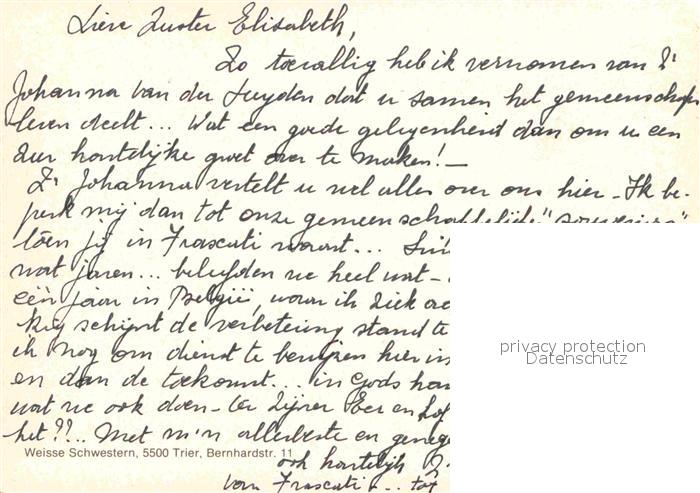 Liere Zuster Elisabeth,
Zo toevallig heb ik vernomen van Zr
Johanna van der Luyden dat u samen het gemeenschaps
leven deelt... Wat een goede gelegenheid dan om u een
zeer hartelijke groet over te maken! –
Zr Johanna vertelt u wel alles over ons hier – Ik be-
perk mij dan tot onze gemeenschappelijke "souvenirs"
toen jij in Frascati waart...
wat jaren... beleefden we heel wat –
één jaar in België, waar ik ziek
schijnt de verbetering stand te
ik nog om dienst te bewijzen hier in
en dan de toekomst... in Gods han
wat we ook doen – ter Zijner Eer en Lof
het??... Met m'n allerbeste en geneg
Weisse Schwestern, 5500 Trier, Bernhardstr. 11
ook hartelijk
van Frascati... tot
privacy protection
Datenschutz